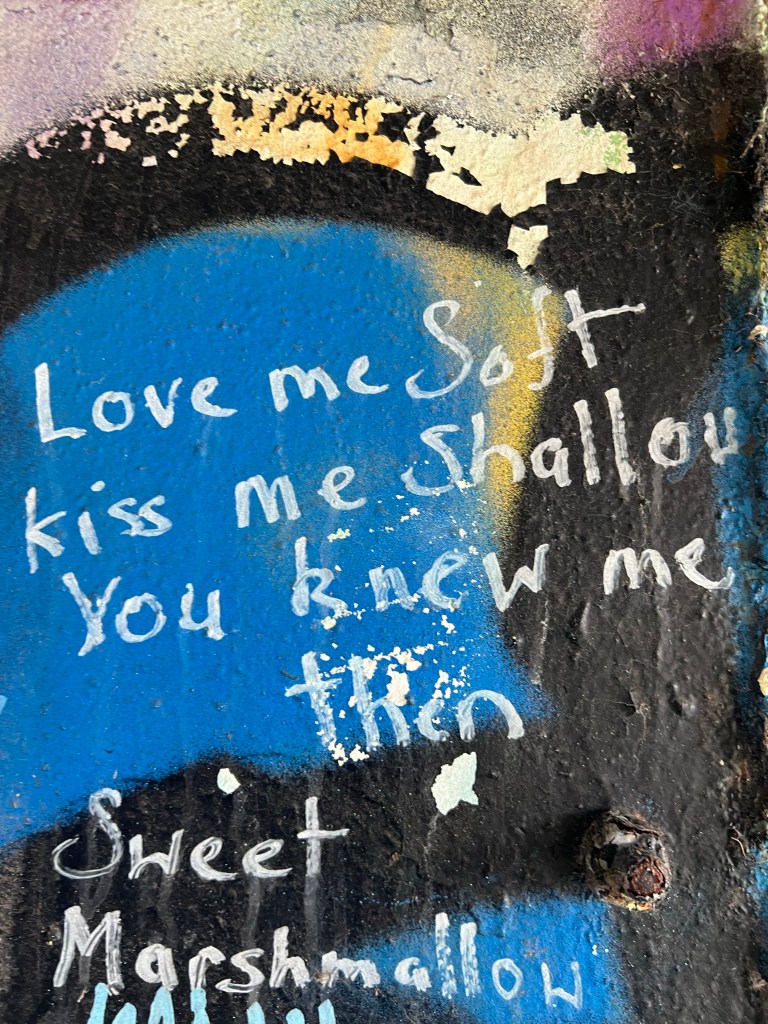 Love me Soft
kiss me Shallow
You knew me
then
Sweet
Marshmallow